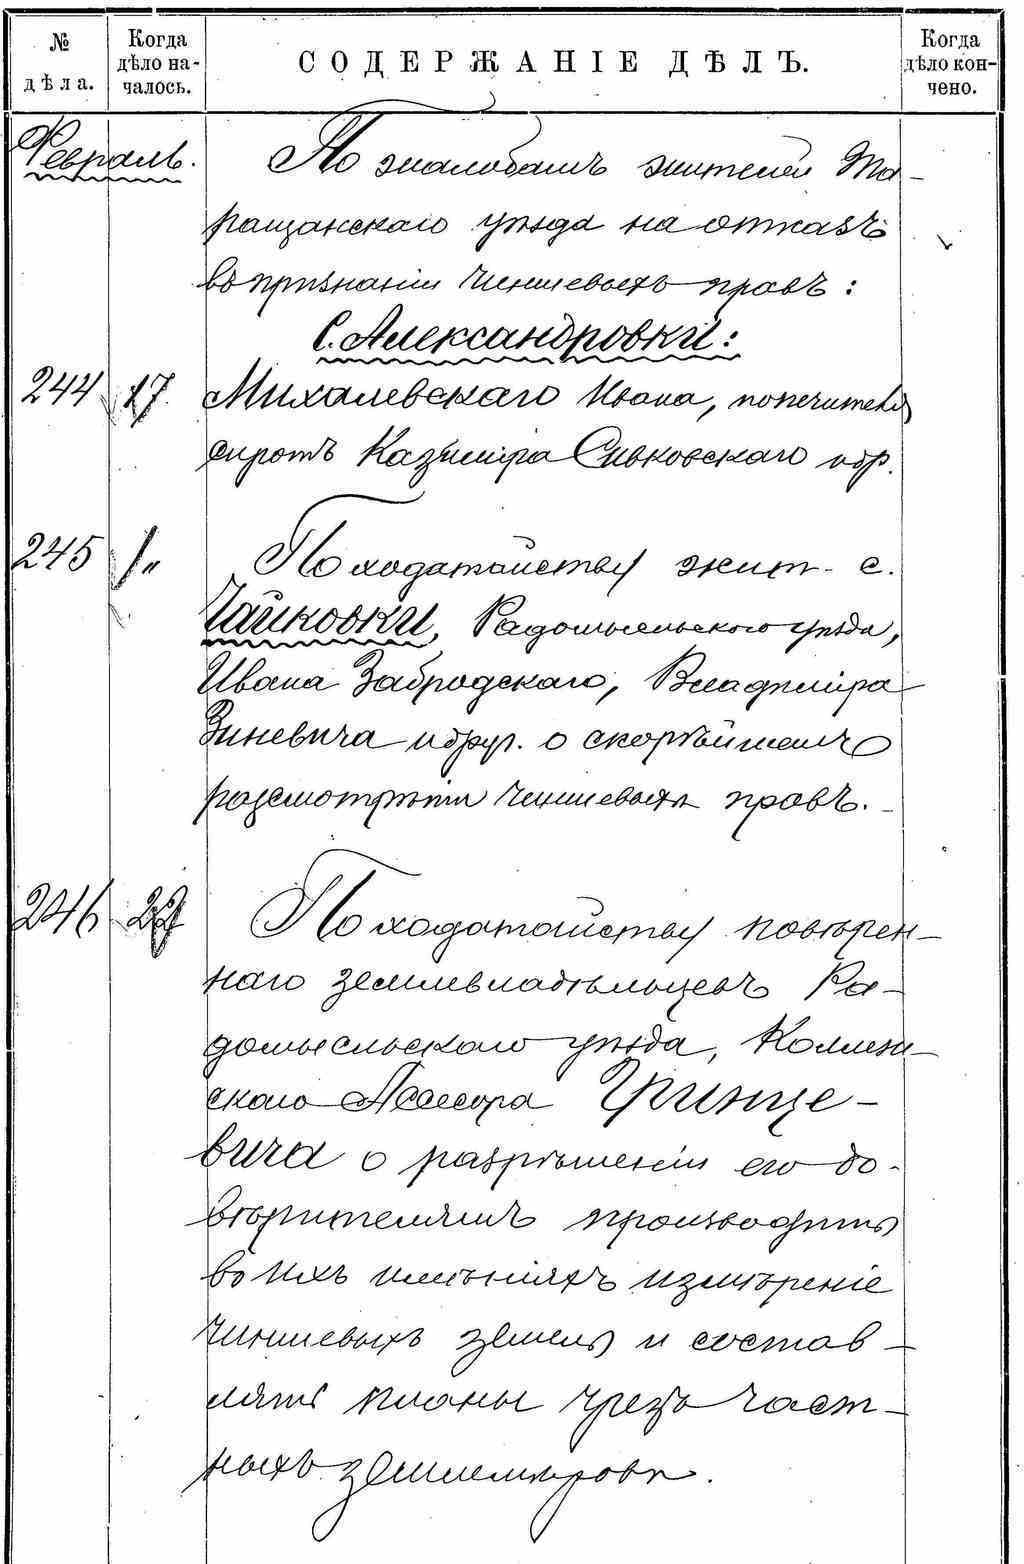 № дѣла. Когда дѣло началось. СОДЕРЖАНІЕ ДѢЛЪ. Когда дѣло кончено.
Февраль. По жалобамъ жителей Та-
ращанскаго уѣзда на отказъ
въ признаніи чиншевыхъ правъ:
С. Александровки:
244 17 Михалевскаго Ивана, попечителя
сиротъ Казиміра Сивковскаго и др.
245 " По ходатайству жит. с.
Чайковки, Радомысльского уѣзда,
Ивана Забродскаго, Владиміра
Зиневича и друг. о скорѣйшемъ
разсмотрѣніи чиншевыхъ правъ.
246 22 По ходатайству повѣрен-
наго землевладѣльцевъ Ра-
домысльскаго уѣзда, Коллеж-
скаго Ассесора Гринце-
вича о разрѣшеніи его до-
вѣрителямъ производить
во ихъ имѣніяхъ измѣреніе
чиншевыхъ земель и состав-
лять планы чрезъ част-
ныхъ землемѣровъ.